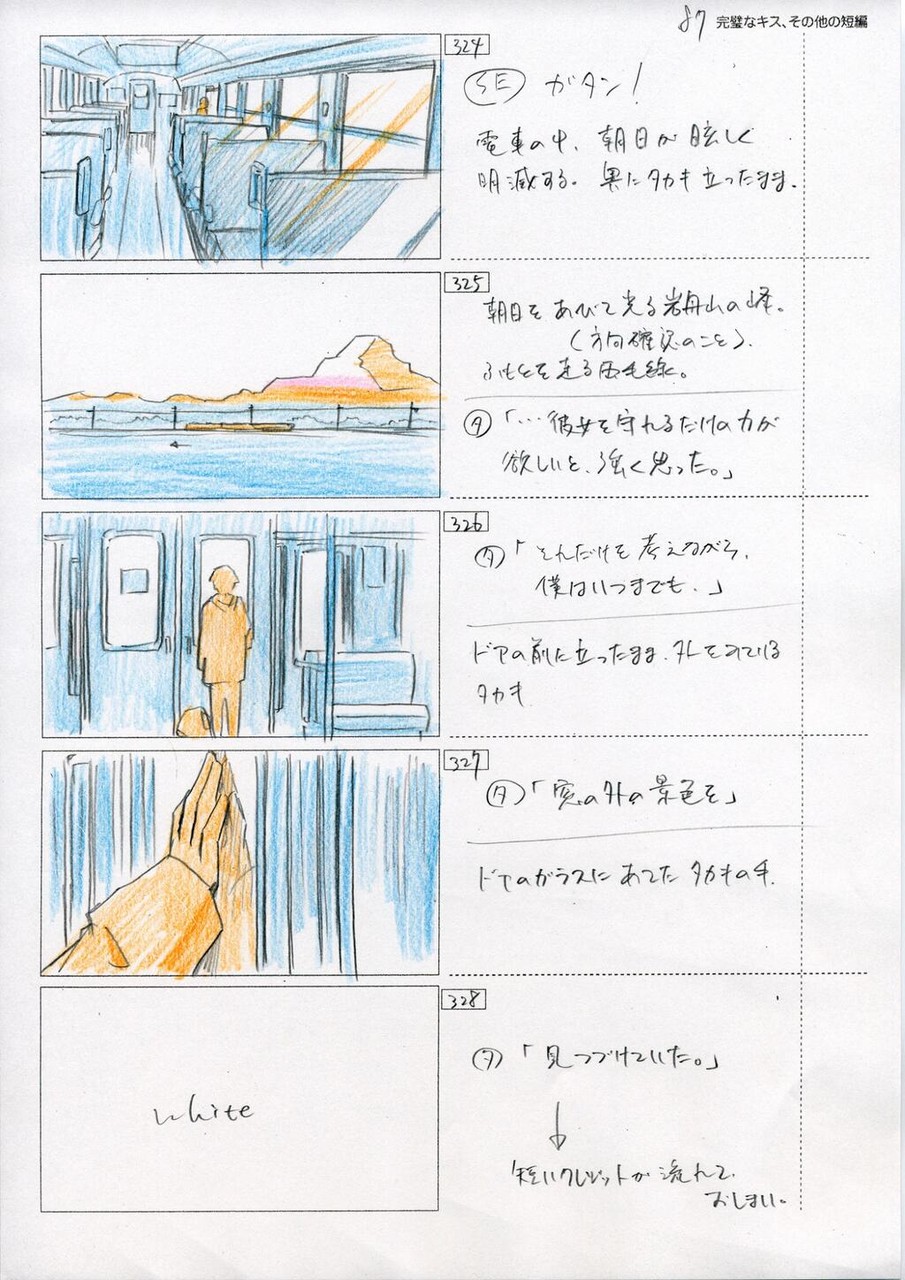 87 完璧なキス、その他の短編
324
SE ガタン!
電車の中、朝日が眩しく
明滅する。奥にタカキ立ったまま。
325
朝日をあびて光る岩舟山の峰。
(方向確認のこと)。
ふもとを走る両毛線。
タ「…彼女を守れるだけの力が
欲しいと、強く思った。」
326
タ「それだけを考えながら、
僕はいつまでも、」
ドアの前に立ったまま、外をみている
タカキ
327
タ「窓の外の景色を」
ドアのガラスにあてたタカキの手。
328
white
タ「見つづけていた。」
↓
短いクレジットが流れて、
おしまい。